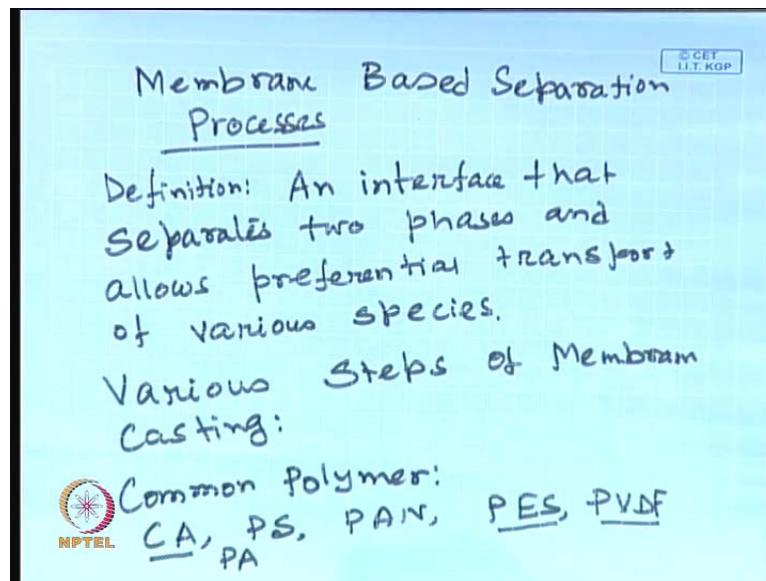 © CET
I.I.T. KGP
Membrane Based Separation
Processes
Definition: An interface that
separates two phases and
allows preferential transport
of various species.
Various Steps of Membram
Casting:
Common Polymer:
CA, PS, PAN, PES, PVDF
PA
NPTEL